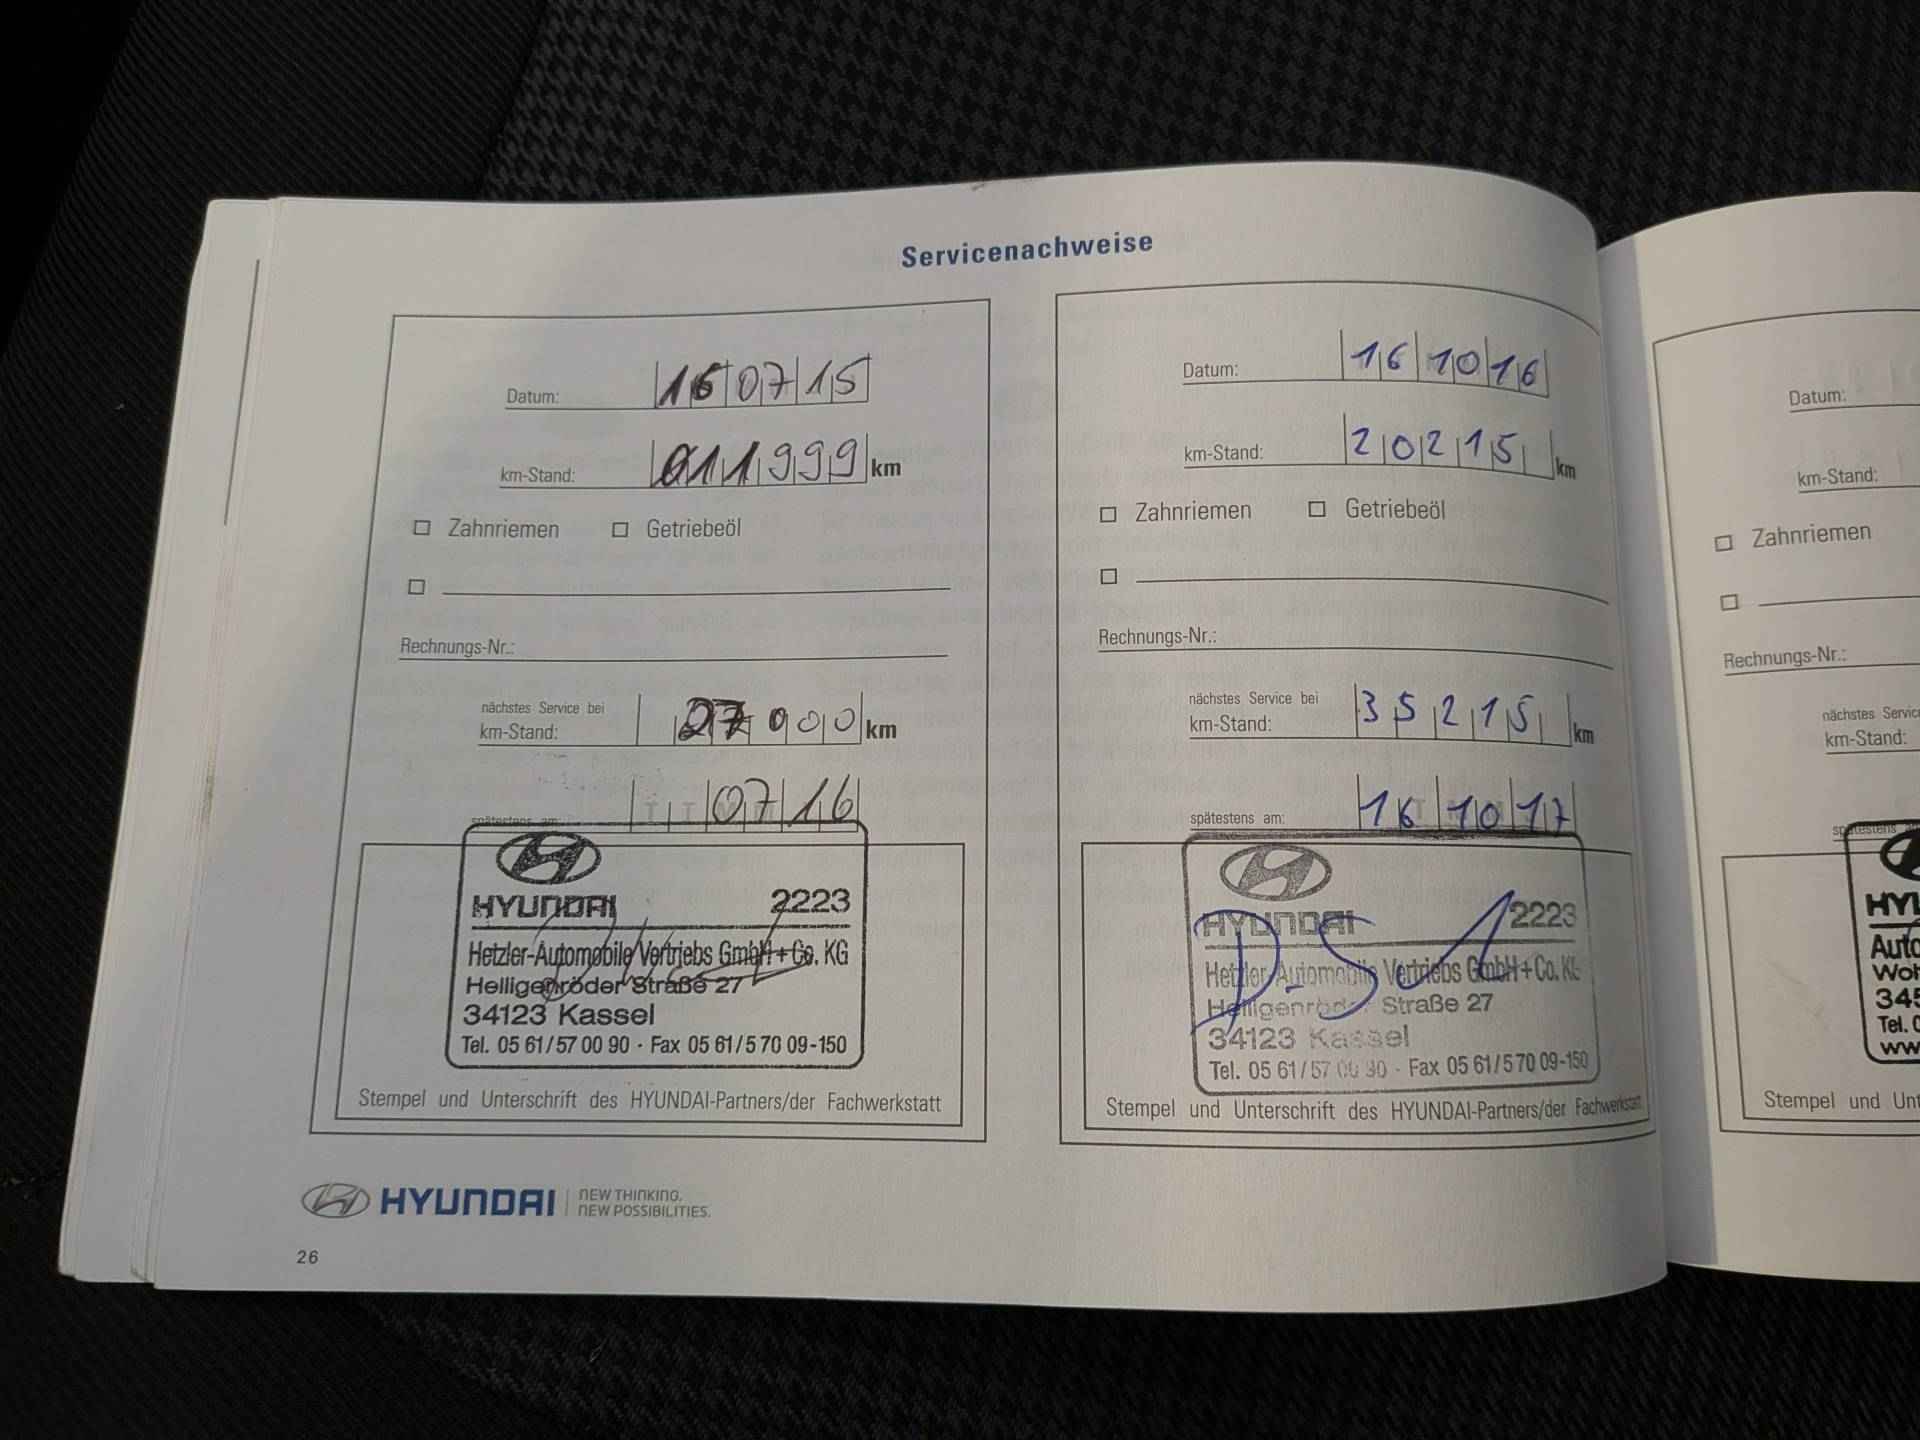 Servicenachweise
Datum: 16 07 15
km-Stand: 011999 km
Zahnriemen Getriebeöl
Rechnungs-Nr.:
nächstes Service bei
km-Stand: 27000 km
spätestens am: 07 16
HYUNDAI 2223
Hetzler-Automobile Vertriebs GmbH+Co. KG
Heiligenröder Straße 27
34123 Kassel
Tel. 05 61/57 00 90 · Fax 05 61/5 70 09-150
Stempel und Unterschrift des HYUNDAI-Partners/der Fachwerkstatt
Datum: 16 10 16
km-Stand: 20215 km
Zahnriemen Getriebeöl
Rechnungs-Nr.:
nächstes Service bei
km-Stand: 35215 km
spätestens am: 16 10 17
HYUNDAI 2223
Hetzler-Automobile Vertriebs GmbH+Co. KG
Heiligenröder Straße 27
34123 Kassel
Tel. 05 61/57 00 90 · Fax 05 61/5 70 09-150
Stempel und Unterschrift des HYUNDAI-Partners/der Fachwerkstatt
HYUNDAI NEW THINKING.
NEW POSSIBILITIES.
26
Datum:
km-Stand:
Zahnriemen
Rechnungs-Nr.:
nächstes Service
km-Stand:
spätestens
Stempel und